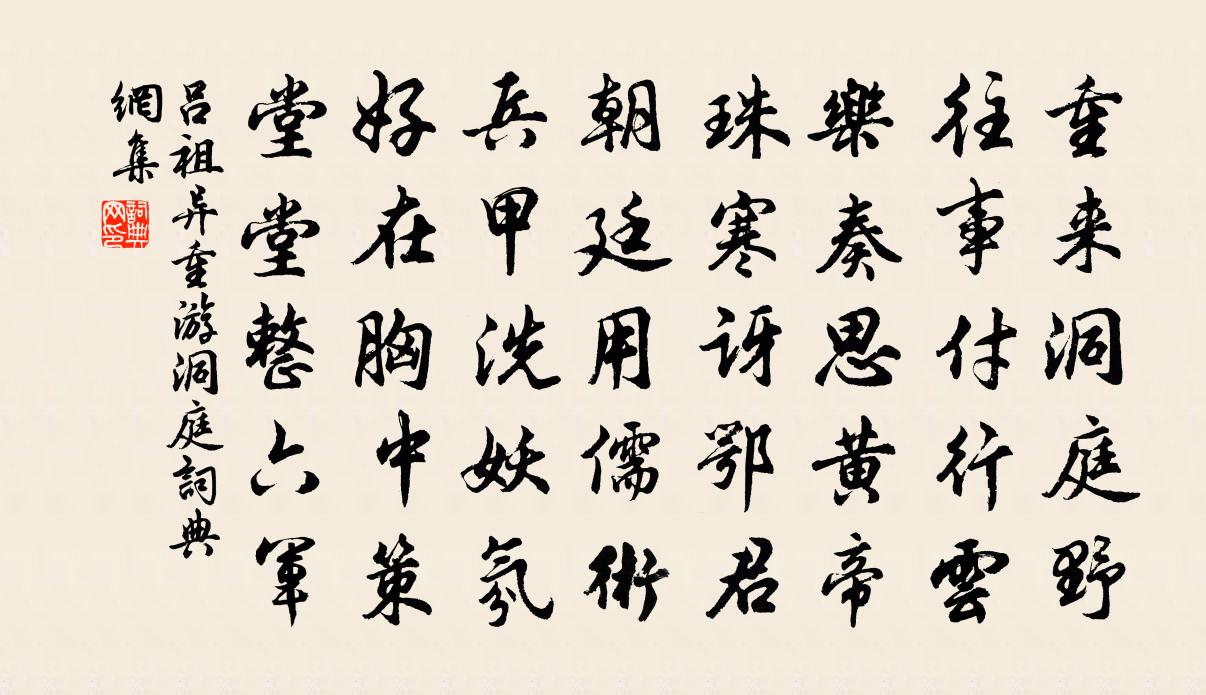 重来洞庭野
往事付行雲
樂奏思黄帝
珠寒訝鄂君
朝廷用儒術
兵甲洗妖氛
好在胸中策
堂堂整六軍
吕祖异重游洞庭詞典
網集
詞典網印